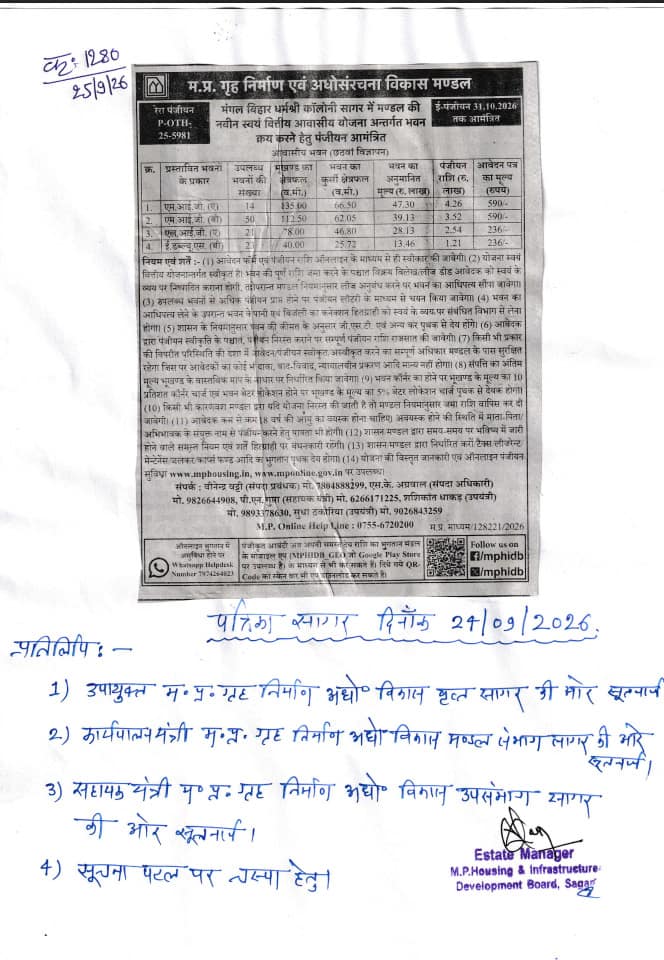 क्र: 1280
25/9/26
म.प्र. गृह निर्माण एवं अधोसंरचना विकास मण्डल
रेरा पंजीयन
P-OTH-
25-5981
मंगल विहार धर्मश्री कॉलोनी सागर में मण्डल की
नवीन स्वयं वित्तीय आवासीय योजना अन्तर्गत भवन
क्रय करने हेतु पंजीयन आमंत्रित
ई-पंजीयन 31.10.2026
तक आमंत्रित
आवासीय भवन (छठवां विज्ञापन)
क्र. प्रस्तावित भवनों के प्रकार उपलब्ध भवनों की संख्या भूखण्ड का क्षेत्रफल (व.मी.) भवन का कुर्सी क्षेत्रफल (व.मी.) भवन का अनुमानित मूल्य (रु. लाख) पंजीयन राशि (रु. लाख) आवेदन पत्र का मूल्य (रुपये)
1. एम.आई.जी. (ए) 14 135.00 66.50 47.30 4.26 590/-
2. एम.आई.जी. (बी) 50 112.50 62.05 39.13 3.52 590/-
3. एल.आई.जी. (ए) 21 78.00 46.80 28.13 2.54 236/-
4. ई.डब्ल्यू.एस. (बी) 23 40.00 25.72 13.46 1.21 236/-
नियम एवं शर्तें :- (1) आवेदन फॉर्म एवं पंजीयन राशि ऑनलाइन के माध्यम से ही स्वीकार की जावेगी। (2) योजना स्वयं
वित्तीय योजनान्तर्गत स्वीकृत है। भवन की पूर्ण राशि जमा करने के पश्चात विक्रय विलेख/लीज डीड आवेदक को स्वयं के
व्यय पर निष्पादित कराना होगी, तदोपरान्त मण्डल नियमानुसार लीज अनुबंध करने पर भवन का आधिपत्य सौंपा जावेगा।
(3) उपलब्ध भवनों से अधिक पंजीयन प्राप्त होने पर पंजीयन लॉटरी के माध्यम से चयन किया जावेगा। (4) भवन का
आधिपत्य लेने के उपरान्त भवन में पानी एवं बिजली का कनेक्शन हितग्राही को स्वयं के व्यय पर संबंधित विभाग से लेना
होगा। (5) शासन के नियमानुसार भवन की कीमत के अनुसार जी.एस.टी. एवं अन्य कर पृथक से देय होंगे। (6) आवेदक
द्वारा पंजीयन स्वीकृति के पश्चात, पंजीयन निरस्त कराने पर सम्पूर्ण पंजीयन राशि राजसात की जावेगी। (7) किसी भी प्रकार
की विपरीत परिस्थिति की दशा में आवेदन/पंजीयन स्वीकृत/अस्वीकृत करने का सम्पूर्ण अधिकार मण्डल के पास सुरक्षित
रहेगा जिस पर आवेदकों का कोई भी दावा, वाद-विवाद, न्यायालयीन प्रकरण आदि मान्य नहीं होगा। (8) संपत्ति का अंतिम
मूल्य भूखण्ड के वास्तविक माप के आधार पर निर्धारित किया जावेगा। (9) भवन कॉर्नर का होने पर भूखण्ड के मूल्य का 10
प्रतिशत कॉर्नर चार्ज एवं भवन बेटर लोकेशन होने पर भूखण्ड के मूल्य का 5% बेटर लोकेशन चार्ज पृथक से देयक होगा।
(10) किसी भी कारणवश मण्डल द्वारा यदि योजना निरस्त की जाती है तो मण्डल नियमानुसार जमा राशि वापिस कर दी
जावेगी। (11) आवेदक कम से कम 18 वर्ष की आयु का वयस्क होना चाहिए। अवयस्क होने की स्थिति में माता-पिता/
अभिभावक के संयुक्त नाम से पंजीयन करने हेतु पात्रता भी होगी। (12) शासन मण्डल द्वारा समय-समय पर भविष्य में जारी
होने वाले समस्त नियम एवं शर्तें हितग्राही पर बंधनकारी रहेंगी। (13) शासन मण्डल द्वारा निर्धारित करों टैक्स लीजरेन्ट
मेन्टेनेंस/जलकर कार्पस फण्ड आदि का भुगतान पृथक देय होगा। (14) योजना की विस्तृत जानकारी एवं ऑनलाइन पंजीयन
सुविधा www.mphousing.in, www.mponline.gov.in पर उपलब्ध।
संपर्क : वीनेन्द्र चट्टी (संपदा प्रबंधक) मो. 7804888299, एस.के. अग्रवाल (संपदा अधिकारी)
मो. 9826644908, पी.एन. गुप्ता (सहायक यंत्री) मो. 6266171225, शशिकांत धाकड़ (उपयंत्री)
मो. 9893378630, सुधा ठकोरिया (उपयंत्री) मो. 9026843259
M.P. Online Help Line : 0755-6720200
म.प्र. माध्यम/128221/2026
ऑनलाइन भुगतान में
असुविधा होने पर
Whatsapp Helpdesk
Number 7974264023
पंजीकृत आवंटी अब अपनी समस्त देय राशि का भुगतान मंडल
के मोबाइल एप (MPHIDB_GEO जो Google Play Store
पर उपलब्ध है) के माध्यम से भी कर सकते हैं। दिये गये QR-
Code को स्केन कर भी एप डाउनलोड कर सकते हैं।
Follow us on
/mphidb
/mphidb
पत्रिका सागर दिनाँक 24/09/2026.
प्रतिलिपि : -
1) उपायुक्त म.प्र. गृह निर्माण अधो० विकास वृत्त सागर की ओर सूचनार्थ
2) कार्यपालन यंत्री म.प्र. गृह निर्माण अधो विकास मण्डल संभाग सागर की ओर
सूचनार्थ।
3) सहायक यंत्री म.प्र. गृह निर्माण अधो० विकास उपसंभाग सागर
की ओर सूचनार्थ।
4) सूचना पटल पर चस्पा हेतु।
Estate Manager
M.P.Housing & Infrastructure
Development Board, Sagar